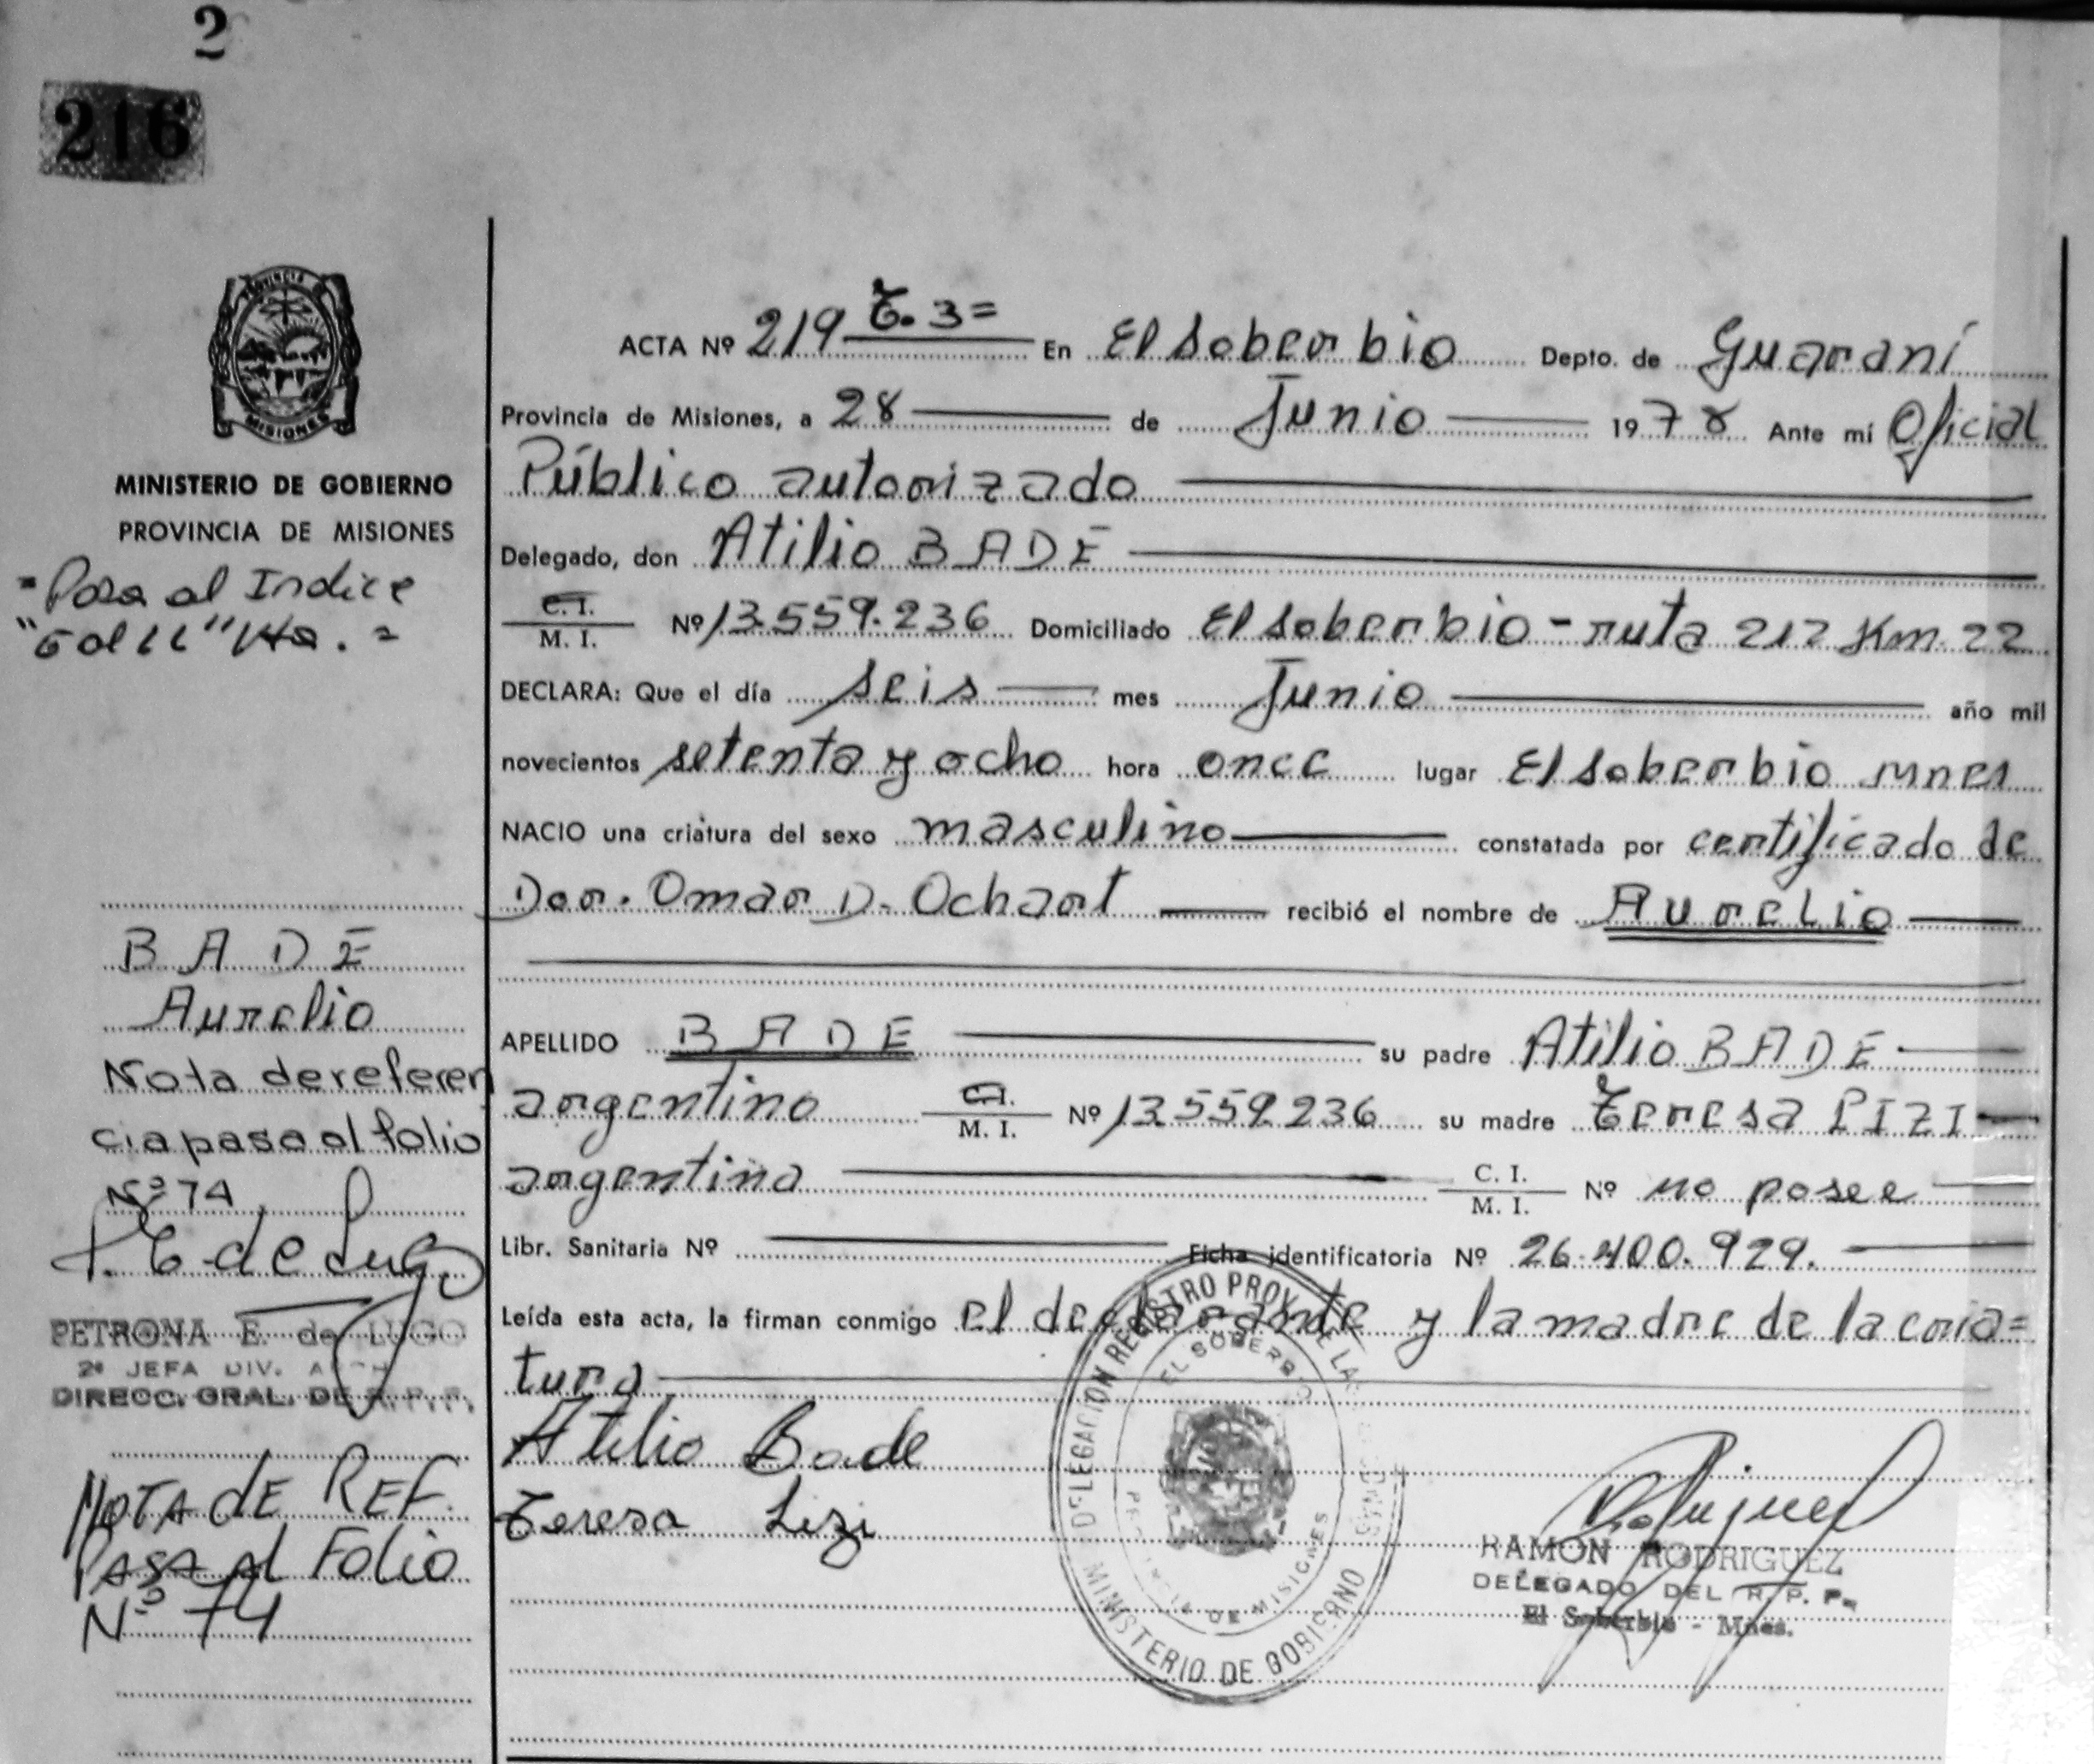 2
216
PROVINCIA DE
MISIONES
MINISTERIO DE GOBIERNO
PROVINCIA DE MISIONES
=Pasa al Indice
BADE
Aurelio
Nota dereferen
cia pasa al folio
Nº 74
P. E de Lugo
PETRONA E. de LUGO
2ª JEFA DIV.
DIRECC. GRAL. DE R. P. P.
NOTA dE REF.
PASA Al Folio
Nº 74
ACTA Nº 219 T. 3= En El Soberbio Depto. de Guaraní
Provincia de Misiones, a 28 de Junio 1978 Ante mí Oficial
Público autorizado
Delegado, don Atilio BADE
C. I. / M. I. Nº 13.559.236 Domiciliado El Soberbio - ruta 212 Km. 22
DECLARA: Que el día seis mes Junio año mil
novecientos setenta y ocho hora once lugar El Soberbio Mnes
NACIO una criatura del sexo masculino constatada por certificado de
Dor. Omar D. Ochart recibió el nombre de Aurelio
APELLIDO BADE su padre Atilio BADE
argentino C.I. / M. I. Nº 13.559.236 su madre Teresa LIZI
argentina C. I. / M. I. Nº no posee
Libr. Sanitaria Nº Ficha identificatoria Nº 26.400.929.
Leída esta acta, la firman conmigo el declarante y la madre de la cria=
tura
Atilio Bade
Teresa Lizi
DELEGACION REGISTRO PROV. DE LAS PERSONAS
EL SOBERBIO
PROVINCIA DE MISIONES
MINISTERIO DE GOBIERNO
RAMON RODRIGUEZ
DELEGADO DEL R. P. P.
El Soberbio - Mnes.